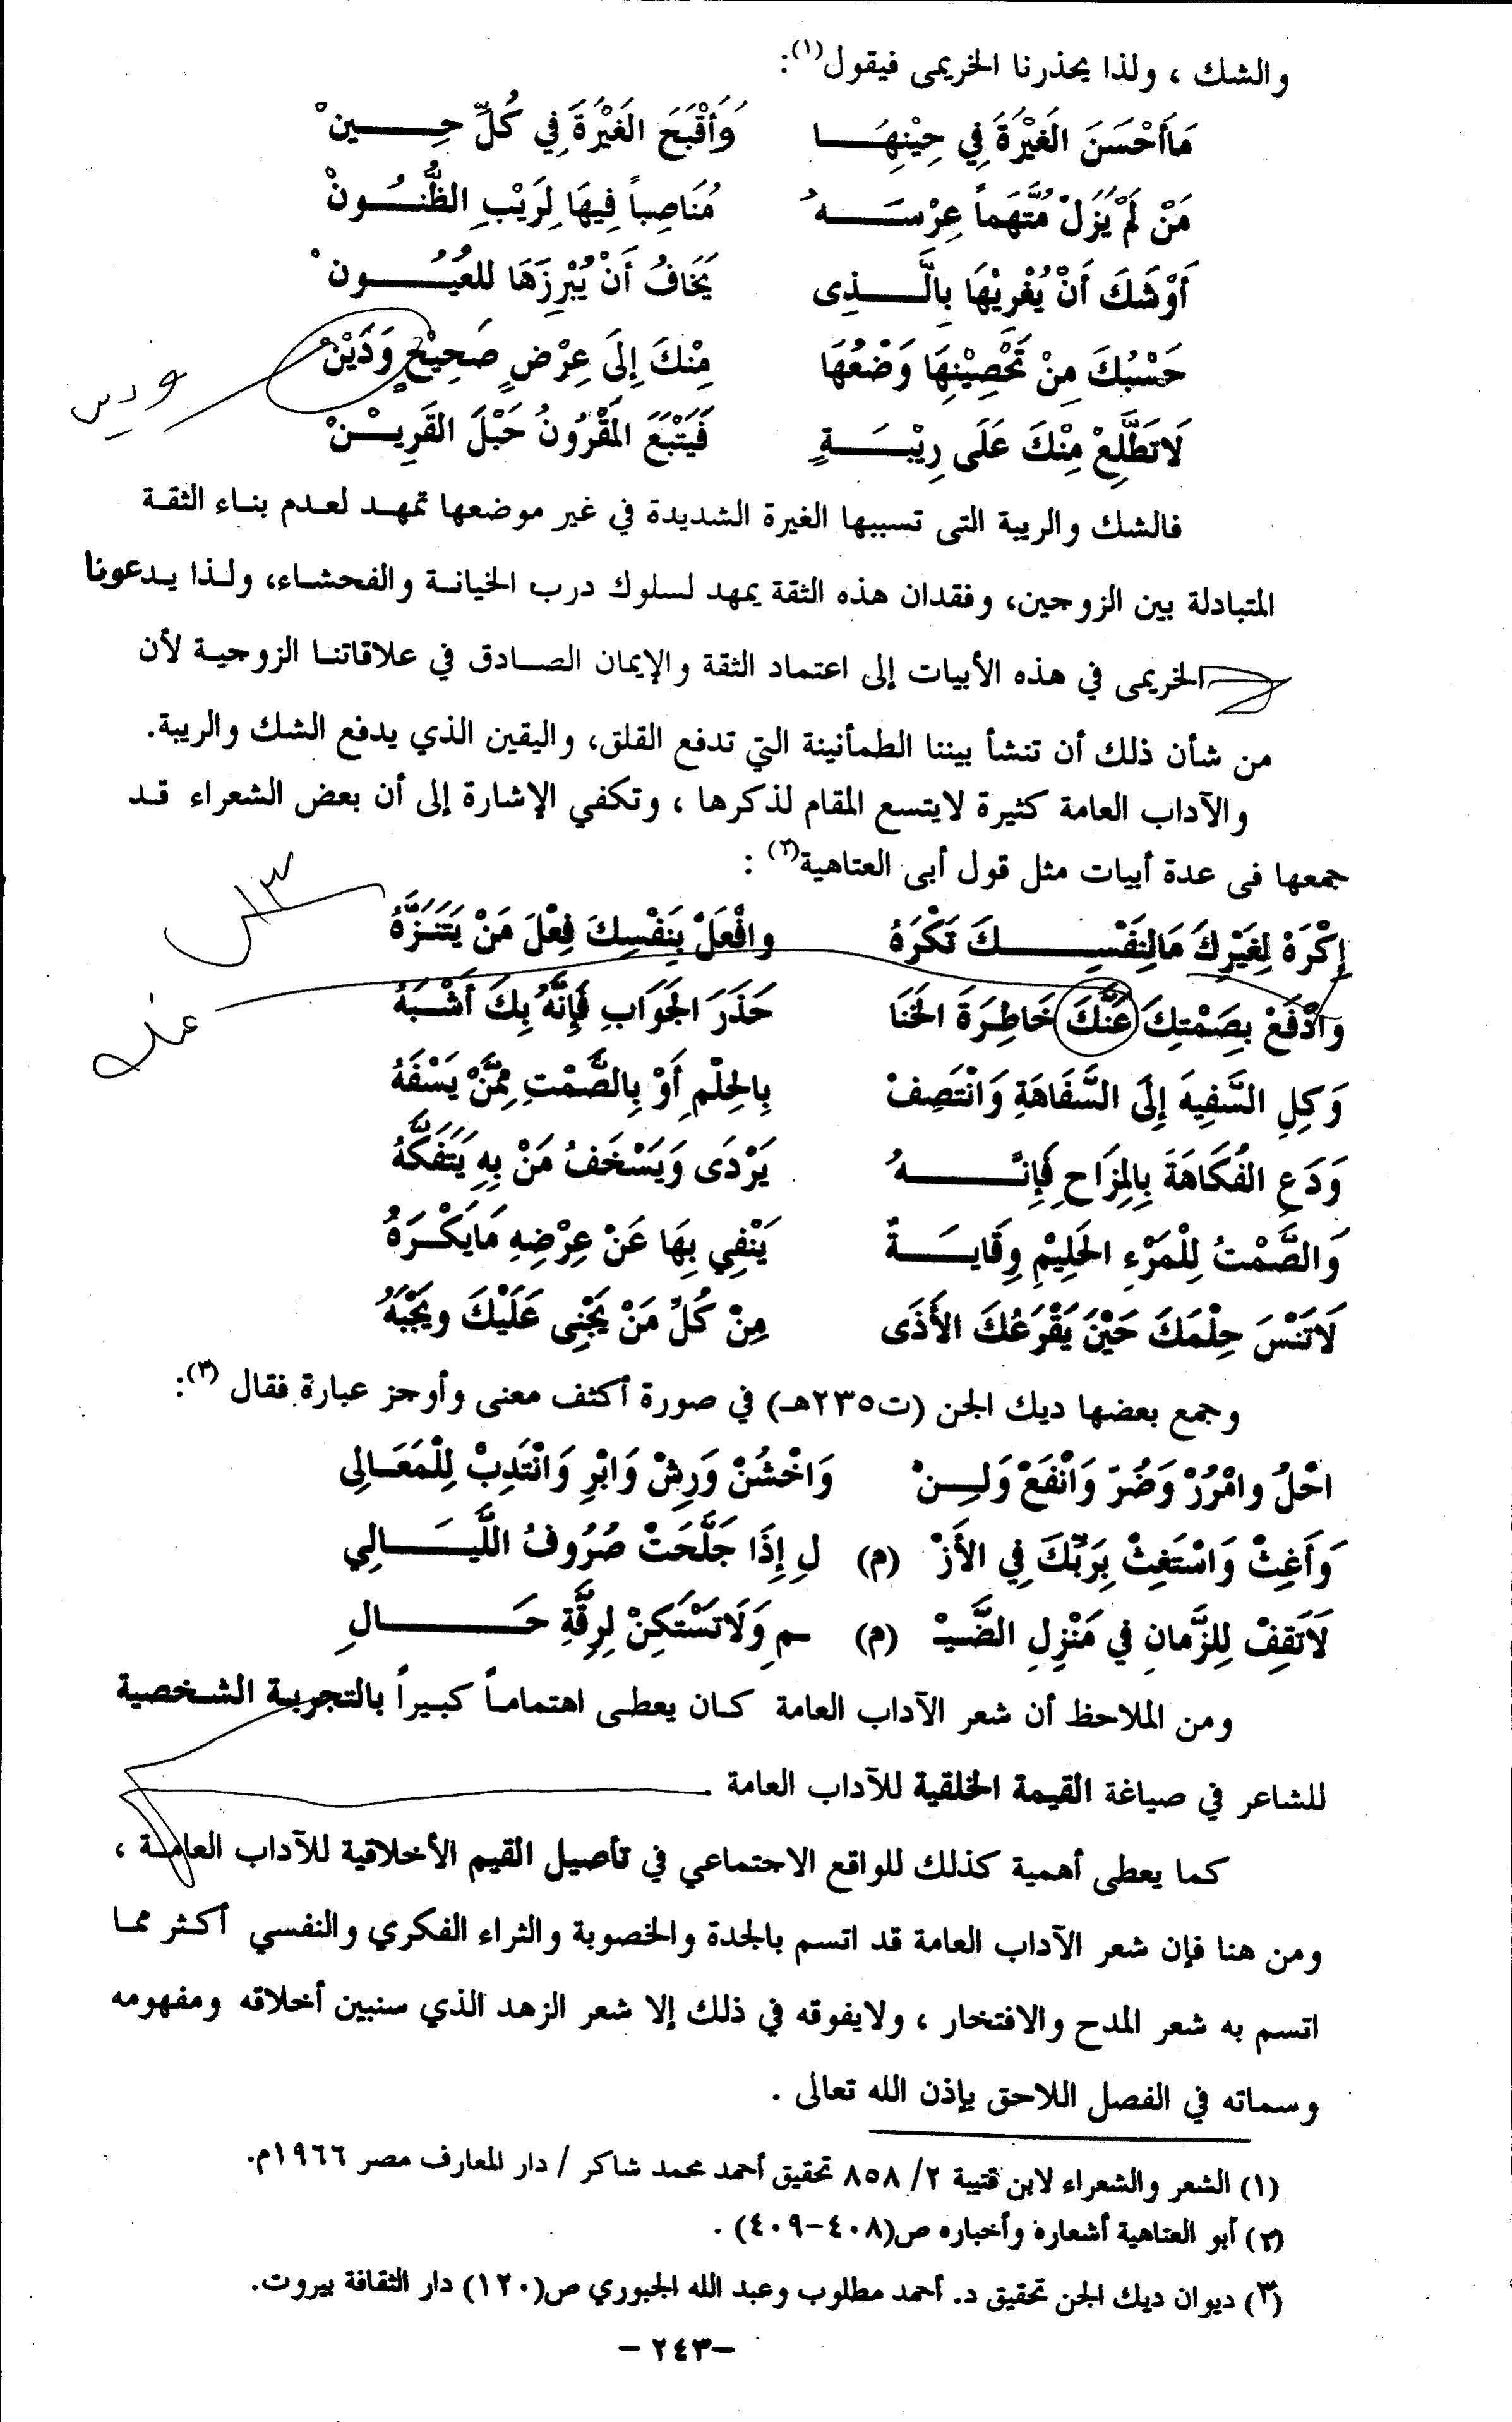 والشك ، ولذا يحذرنا الخريمى فيقول(١):
مَاأَحْسَنَ الغَيْرَةَ فِي حِيْنِهَــــا وَأَقْبَحَ الغَيْرَةَ فِي كُلِّ حِـــــين ْ
مَنْ لَمْ يَزَلْ مُتَّهَماً عِرْسَــــهُ مُنَاصِباً فِيهَا لِرَيْبِ الظُّنُــــونْ
أَوْشَكَ أَنْ يُغْرِيْهَا بِالَّــــذِى يَخَافُ أَنْ يُبْرِزَهَا للعُيُــــون ْ
حَسْبُكَ مِنْ تَحْصِيْنِهَا وَضْعُهَا مِنْكَ إِلَى عِرْضٍ صَحِيْحٍ وَدَيْنْ
ودين
لَاتَطَّلِعْ مِنْكَ عَلَى رِيْبَــــةٍ فَيَتْبَعَ المَقْرُونُ حَبْلَ القَرِيــــنْ
فالشك والريبة التى تسببها الغيرة الشديدة في غير موضعها تمهد لعدم بناء الثقة
المتبادلة بين الزوجين، وفقدان هذه الثقة يمهد لسلوك درب الخيانة والفحشاء، ولذا يدعونا
الخريمى في هذه الأبيات إلى اعتماد الثقة والإيمان الصادق في علاقاتنا الزوجية لأن
من شأن ذلك أن تنشأ بيننا الطمأنينة التي تدفع القلق، واليقين الذي يدفع الشك والريبة.
والآداب العامة كثيرة لايتسع المقام لذكرها ، وتكفي الإشارة إلى أن بعض الشعراء قد
جمعها فى عدة أبيات مثل قول أبى العتاهية(٢) :
إِكْرَهْ لِغَيْرِكَ مَالِنَفْسِــــــكَ تَكْرَهُ وافْعَلْ بِنَفْسِكَ فِعْلَ مَنْ يَتَنَزَّهُ
وَادْفَعْ بِصَمْتِكَ عَنَّكَ خَاطِرَةَ الخَنَا حَذَرَ الجَوَابِ فَإِنَّهُ بِكَ أَشْبَهُ
عنك
وَكِلِ السَّفِيهَ إِلَى السَّفَاهَةِ وَانْتَصِفْ بِالحِلْمِ أَوْ بِالصَّمْتِ مِمَّنْ يَسْفَهُ
وَدَعِ الفُكَاهَةَ بِالمِزَاحِ فَإِنَّــــــهُ يَرْدَى وَيَسْخَفُ مَنْ بِهِ يَتَفَكَّهُ
وَالصَّمْتُ لِلْمَرْءِ الحَلِيْمِ وِقَايَــــةٌ يَنْفِي بِهَا عَنْ عِرْضِهِ مَايَكْرَهُ
لَاتَنْسَ حِلْمَكَ حَيْنَ يَقْرَعُكَ الأَذَى مِنْ كُلِّ مَنْ يَجْنِى عَلَيْكَ ويَجْبَهُ
وجمع بعضها ديك الجن (ت٢٣٥هـ) في صورة أكثف معنى وأوجز عبارة فقال (٣):
احْلُ وامْرُرْ وَضُرّ وَانْفَعْ وَلِــــنْ وَاخْشُنْ وَرِشْ وَابْرِ وَانْتَدِبْ لِلْمَعَــالِى
وَأَغِثْ وَاسْتَغِثْ بِرَبِّكَ فِي الأَزْ (م) لِ إِذَا جَلَّحَتْ صُرُوفُ اللَّيَــــالِي
لَاتَقِفْ لِلزَّمانِ فِي مَنْزِلِ الضَّيْـ (م) ـمِ وَلَاتَسْتَكِنْ لِرِقَّةِ حَــــــالِ
ومن الملاحظ أن شعر الآداب العامة كان يعطى اهتماماً كبيراً بالتجربة الشخصية
للشاعر في صياغة القيمة الخلقية للآداب العامة .
كما يعطى أهمية كذلك للواقع الاجتماعي في تأصيل القيم الأخلاقية للآداب العامة ،
ومن هنا فإن شعر الآداب العامة قد اتسم بالجدة والخصوبة والثراء الفكري والنفسي أكثر مما
اتسم به شعر المدح والافتخار ، ولايفوقه في ذلك إلا شعر الزهد الذي سنبين أخلاقه ومفهومه
وسماته في الفصل اللاحق بإذن الله تعالى .
(١) الشعر والشعراء لابن قتيبة ٢/ ٨٥٨ تحقيق أحمد محمد شاكر / دار المعارف مصر ١٩٦٦م.
(٢) أبو العتاهية أشعاره وأخباره ص(٤٠٨-٤٠٩) .
(٣) ديوان ديك الجن تحقيق د. أحمد مطلوب وعبد الله الجبوري ص(١٢٠) دار الثقافة بيروت.
-٢٤٣-